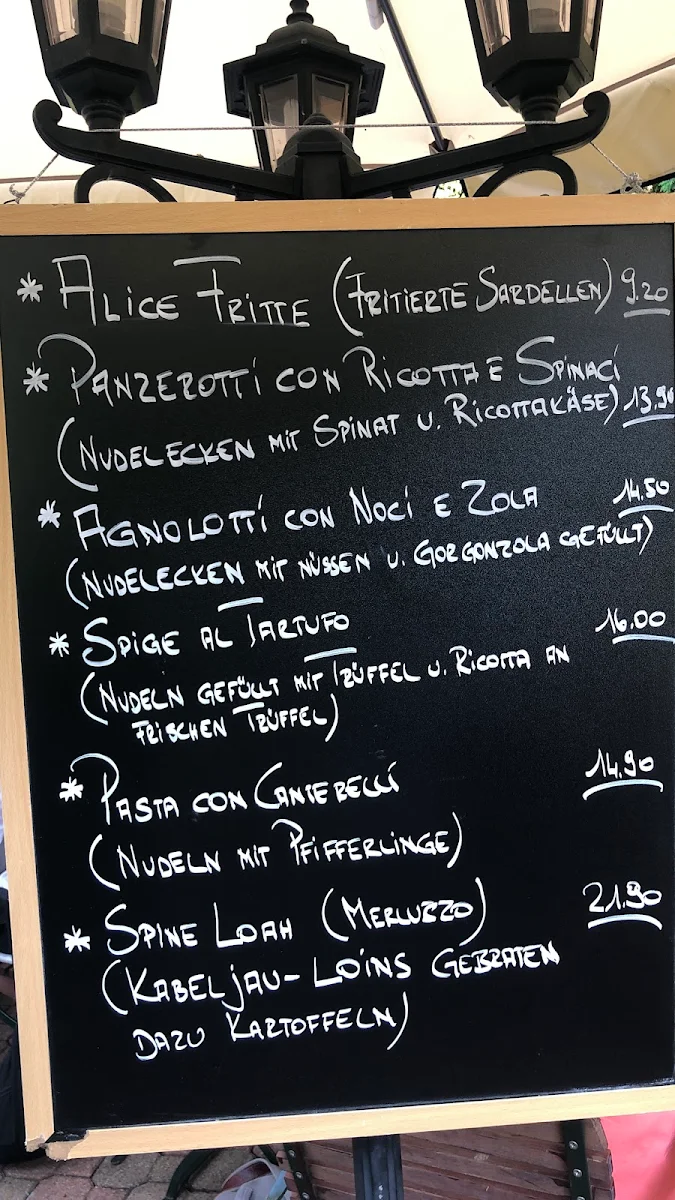 * ALICE FRITTE (FRITIERTE SARDELLEN) 9.20
* PANZEROTTI CON RICOTTA E SPINACI
(NUDELECKEN MIT SPINAT U. RICOTTAKÄSE) 13.90
* AGNOLOTTI CON NOCI E ZOLA 14.50
(NUDELECKEN MIT NÜSSEN U. GORGONZOLA GEFÜLLT)
* SPIGE AL TARTUFO 16.00
(NUDELN GEFÜLLT MIT TRÜFFEL U. RICOTTA AN
FRISCHEN TRÜFFEL)
* PASTA CON CANTERELLI 14.90
(NUDELN MIT PFIFFERLINGE)
* SPINE LOAH (MERLUZZO) 21.90
(KABELJAU-LOINS GEBRATEN
DAZU KARTOFFELN)